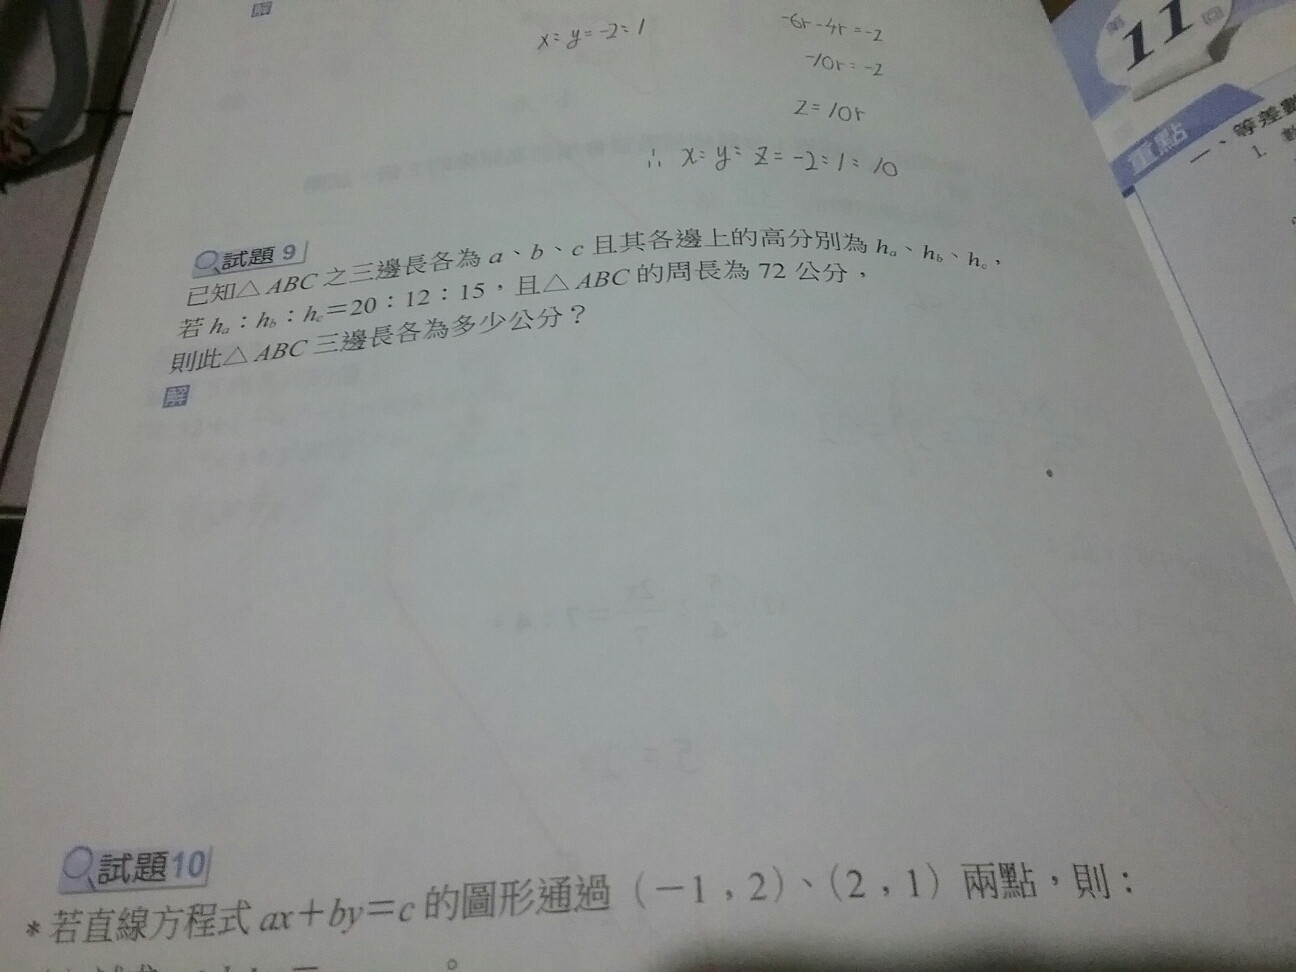 解
x:y=-2:1
-6r-4r=-2
-10r=-2
2=10r
∴ x:y:z=-2:1:10
試題9
已知△ABC之三邊長各為a、b、c且其各邊上的高分別為hₐ、h_b、h_c,
若hₐ:h_b:h_c=20:12:15,且△ABC的周長為72公分,
則此△ABC三邊長各為多少公分?
解
試題10
*若直線方程式ax+by=c的圖形通過(-1,2)、(2,1)兩點,則:
第11回
重點
一、等差數
1.